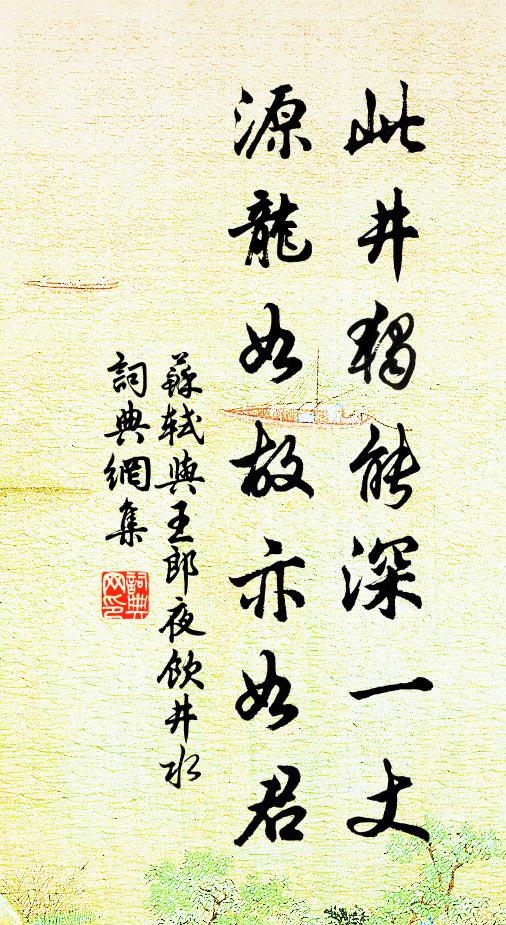 此井獨能深一丈
源龍如故亦如君
蘇軾與王郎夜飲井水
詞典網集
詞典網印